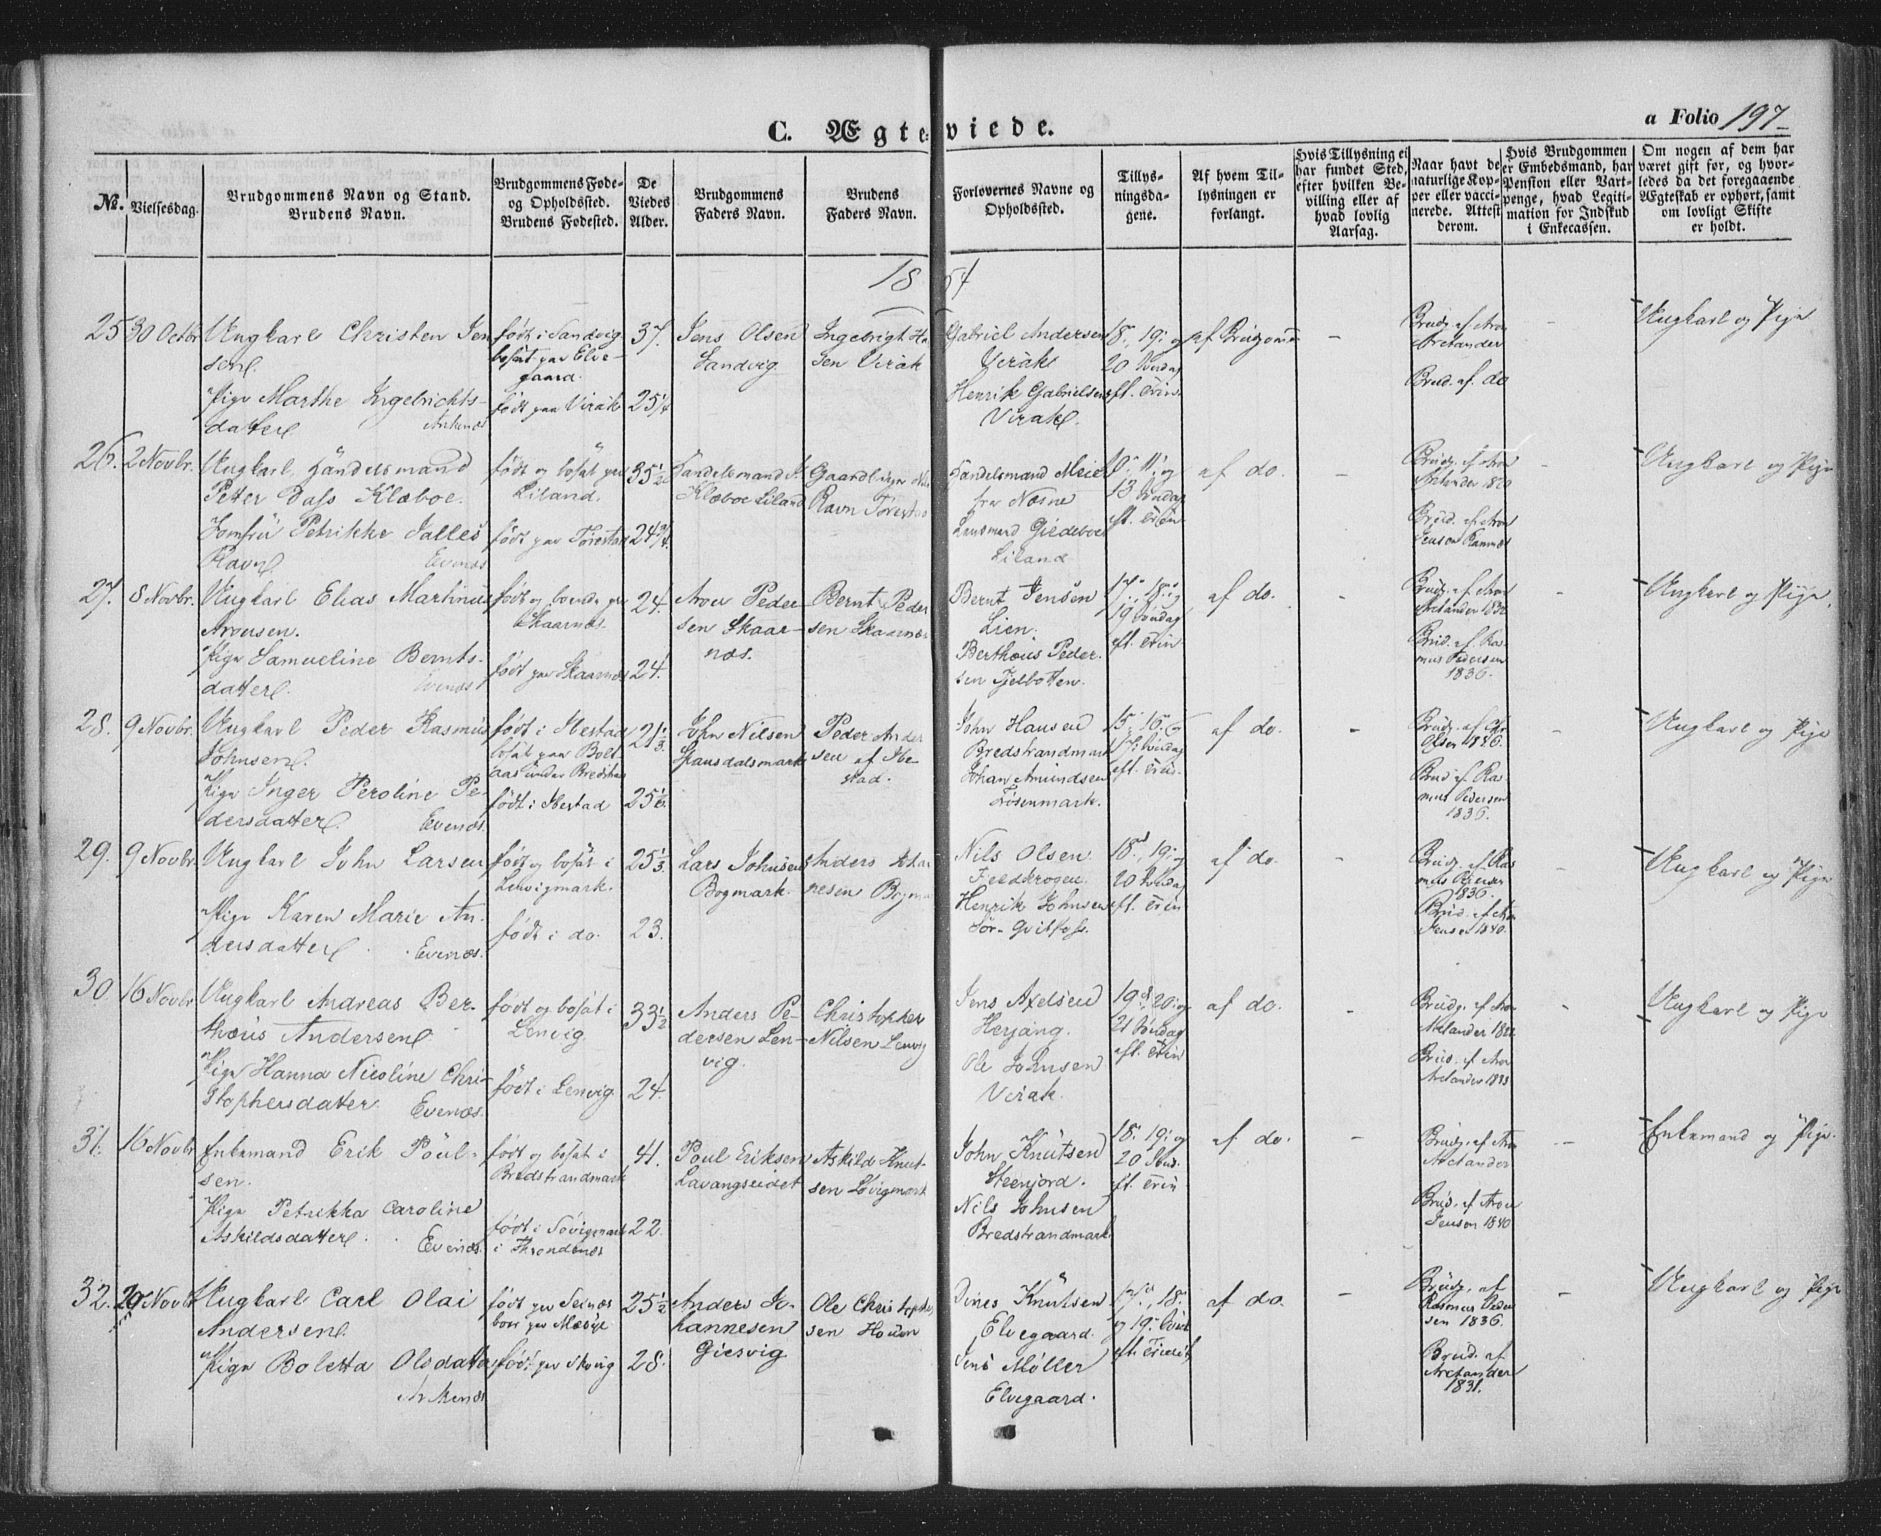 C. Ægteviede.
a Folio 197
No.
Vielsesdag.
Brudgommens Navn og Stand.
Brudens Navn.
Brudgommens Føde-
og Opholdssted.
Brudens Fødested.
De
Viedes
Alder.
Brudgommens
Faders Navn.
Brudens
Faders Navn.
Forlovernes Navne og
Opholdssted.
Tillys-
ningsda-
gene.
Af hvem Til-
lysningen er
forlangt.
Hvis Tillysning ei
har fundet Sted,
efter hvilken Be-
villing eller af
hvad lovlig
Aarsag.
Naar havt de
naturlige Kop-
per eller vacci-
nerede. Attest
derom.
Hvis Brudgommen
er Embedsmand, har
Pension eller Vart-
penge, hvad Legiti-
mation for Indskud
i Enkecassen.
Om nogen af dem har
været gift før, og hvor-
ledes da det foregaaende
Ægteskab er ophørt, samt
om lovligt Skifte
er holdt.
1854
25 30 Octbr
Ungkarl Christen Jen
sen.
Pige Marthe Ingebrichts-
datter. Ankenæs
født i Sandvig
bosat paa Elve-
gaard.
født paa Virak
37.
25 1/4
Jens Olsen
Sandvig
Ingebrigt Han
sen Virak
Gabriel Andersen
Virak
Henrik Gabrielsen
Virak.
18, 19 og
20 Søndag
eft. Trin.
af Brudgom
-
Brudg. af Aron
Arctander
Brud. af do
-
Ungkarl og Pige
26. 2 Novbr.
Ungkarl Handelsmand
Peter Dass Klæboe.
Jomfru Petrikke Jalles
Ravn Evenæs
født og bosat paa
Liland.
født paa Torestad
35 1/2
24 3/4.
Handelsmand
Klæboe Liland
Gaardbruger
Ravn Torestad
Handelsmand Meier
fra Næsne
Lensmand Gildeboe
Liland
11 og
13 Søndag
eft. Trin
af do.
-
Brudg. af Aron
Arctander 1820
Brud. af Aron
Jenson Ramnæs
-
Ungkarl og Pige
27. 8 Novbr.
Ungkarl Elias Martinus
Aronsen.
Pige Samueline Bernts-
datter. Evenæs
født og boende paa
Skaarnæs.
født paa Skaarnæs
24.
24.
Aron Peder
sen Skaar-
næs.
Bernt Peder
sen Skaarnæs
Bernt Jensen
Lien.
Bertheus Peder
sen Fjelbotten.
17, 18 og
19 Søndag
eft. Trin
af do.
-
Brudg. af Aron
Arctander
Brud. af Ras
mus Pedersen
1836.
-
Ungkarl og Pige.
28. 9 Novbr.
Ungkarl Peder Rasmus
Johnsen.
Pige Inger Peroline Pe-
dersdatter. Evenæs.
født i Ibestad
bosat paa Bolt
aas under Bredstran
født i Ibestad
21 1/3
25 1/6.
John Nilsen
Gausdalsmark
Peder Ander
sen af Ibe-
stad.
John Hansen
Bredstrandmark
Johan Amundsen
Fosenmark.
15, 16 og
17 Søndag
eft. Trin.
af do.
-
Brudg. af
Olsen 1836.
Brud af Ras
mus Pedersen
1836.
-
Ungkarl og Pige
29. 9 Novbr.
Ungkarl John Larsen
Pige Karen Marie An-
dersdatter. Evenæs.
født og bosat i
Lenvigmark.
født i do.
25 1/3
23.
Lars Johnsen
Bogmark.
Anders Johan
nesen
Nils Olsen
Henrik Johnsen
18, 19 og
20 Søndag
eft. Trin
af do.
-
Brudg. af Ras
mus Pedersen
1836.
Brud. af Aron
Jensen 1840.
-
Ungkarl og Pige
30. 16 Novbr.
Ungkarl Andreas Ber-
thæus Andersen.
Pige Hanna Nicoline Chri-
stophersdatter. Evenæs.
født og bosat i
Lenvig
født i Lenvig.
33 1/2
24.
Anders Pe-
dersen Len-
vig.
Christopher
Nilsen Lenvig
Jens Axelsen
Herjang.
Ole Johnsen
Virak.
19, 20 og
21 Søndag
eft. Trin
af do.
-
Brudg. af Aron
Arctander
Brud. af Aron
Arctander
-
Ungkarl og Pige
31. 16 Novbr
Enkemand Erik Poul-
sen.
Pige Petrikka Caroline
Askildsdatter. Evenæs.
født og bosat i
Bredstrandmark
født i Søvigmark
i Throndenæs
41.
22.
Poul Eriksen
Lavangseidet
Askild Knut-
sen Søvigmark
John Knutsen
Steenjord.
Nils Johnsen
Bredstrandmark.
18, 19 og
20 Sønd.
eft. Trin
af do.
-
Brudg. af Aron
Arctander
Brud. af Aron
Jenson 1840
-
Enkemand og Pige.
32. 29 Novbr
Ungkarl Carl Olai
Andersen.
Pige Boletta Olsdatter
Ankenæs
født paa
boer paa
født paa
25 1/2
28.
Anders Jo-
hannesen
Giesvig
Ole Christophe
sen
Dines Knutsen
Elvegaard.
Jens Møller
Elvegaard.
17, 18
og 19 Sønd
eft. Trinit
af do.
-
Brudg. af
Rasmus Peder
sen 1836.
Brud. af
Arctander
1831.
-
Ungkarl og Pige